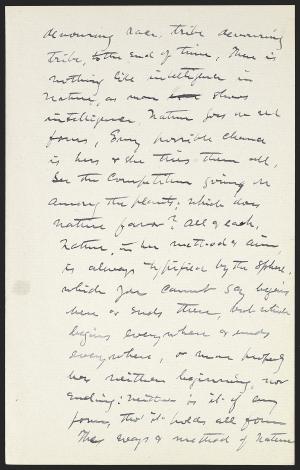 devouring race, tribe devouring
tribe, to the end of time. There is
nothing like intelligence in
Nature, as man shows
intelligence. Nature goes on all
forms, Every possible chance
is hers & she tries them all,
See the Competition going on
among the plants; which does
nature favor? All & each,
Nature, in her methods & aim,
is always typified by the Sphere,
which you cannot say begins
here or ends there, but which
begins everywhere & ends
everywhere, or more properly
has neither beginning, nor
ending; neither is it of any
form, tho' it holds all form
The ways & method of Nature